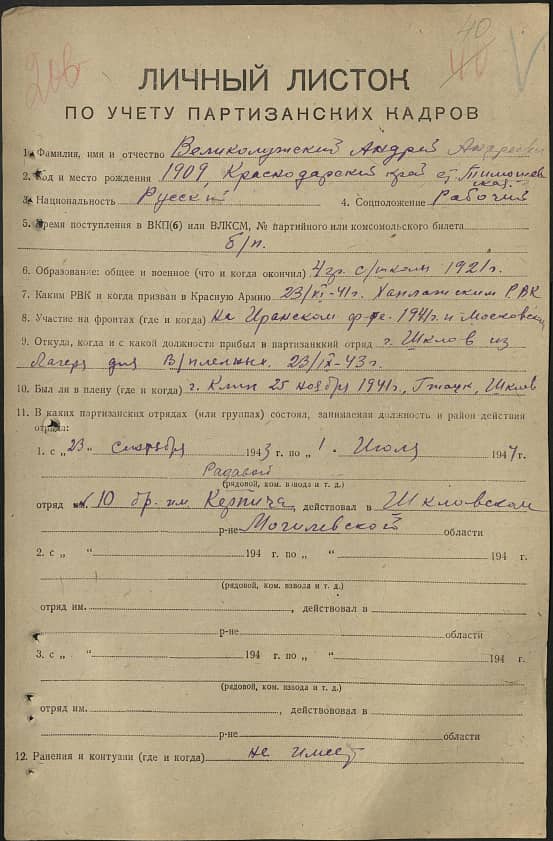 206
40
40
V
ЛИЧНЫЙ ЛИСТОК
ПО УЧЕТУ ПАРТИЗАНСКИХ КАДРОВ
1. Фамилия, имя и отчество Великолужский Андрей
2. Год и место рождения 1909, Краснодарский край ст. Тимошев
ская.
3. Национальность Русский 4. Соцположение Рабочий
5. Время поступления в ВКП(б) или ВЛКСМ, № партийного или комсомольского билета
б/п.
6. Образование: общее и военное (что и когда окончил) 4 гр. с/школы 1921г.
7. Каким РВК и когда призван в Красную Армию 23/VI-41г. РВК
8. Участие на фронтах (где и когда) на Иранском ф-те. 1941г. и Московском
9. Откуда, когда и с какой должности прибыл в партизанский отряд г. Шклов из
Лагеря для В/пленных. 23/IX-43г.
10. Был ли в плену (где и когда) г. Клин 25 ноября 1941г., Шклов
11. В каких партизанских отрядах (или группах) состоял, занимаемая должность и район действия
отряда:
1. с „23 сентября 1943 г. по „1. Июля 1944 г.
Радавой
(рядовой, ком. взвода и т. д.)
отряд им. 10 бр. им Кирпича действовал в Шкловском
р-не Могилевской области
2. с „ “ 194 г. по „ “ 194 г.
(рядовой, ком. взвода и т. д.)
отряд им. , действовал в
р-не области
3. с „ “ 194 г. по „ “ 194 г.
(рядовой, ком. взвода и т. д.)
отряд им. , действововал в
р-не области
12. Ранения и контузии (где и когда) не имеет